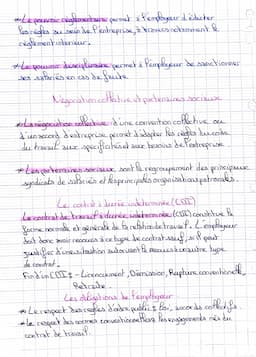 * Le pouvoir réglementaire permet à l'employeur d'éditer
les règles au sein de l'entreprise, à travers notamment le
règlement intérieur.
* Le pouvoir disciplinaire permet à l'employeur de sanctionner
ses salariés en cas de faute
Négociation collective et partenaires sociaux
* La négociation collective d'une convention collective ou
d'un accord d'entreprise permet d'adapter les règles du code
du travail aux spécificités et aux besoins de l'entreprise
* Les partenaires sociaux sont le regroupement des principaux
syndicats de salariés et les principales organisations patronales.
Le contrat à durée indéterminée (CDI)
Le contrat de travail à durée indéterminée (CDI) constitue la
forme normale et générale de la relation de travail. L'employeur
doit donc avoir recours à ce type de contrat sauf, s'il peut
justifier d'une situation autorisant le recours à un autre type
de contrat.
Fin d'un CDI : Licenciement, Démission, Rupture conventionnelle,
Retraite
Les obligations de l'employeur
* Le respect des règles d'ordre public : loi, accords collectifs
* Le respect des normes conventionnelles : les engagements nés du
contrat de travail.